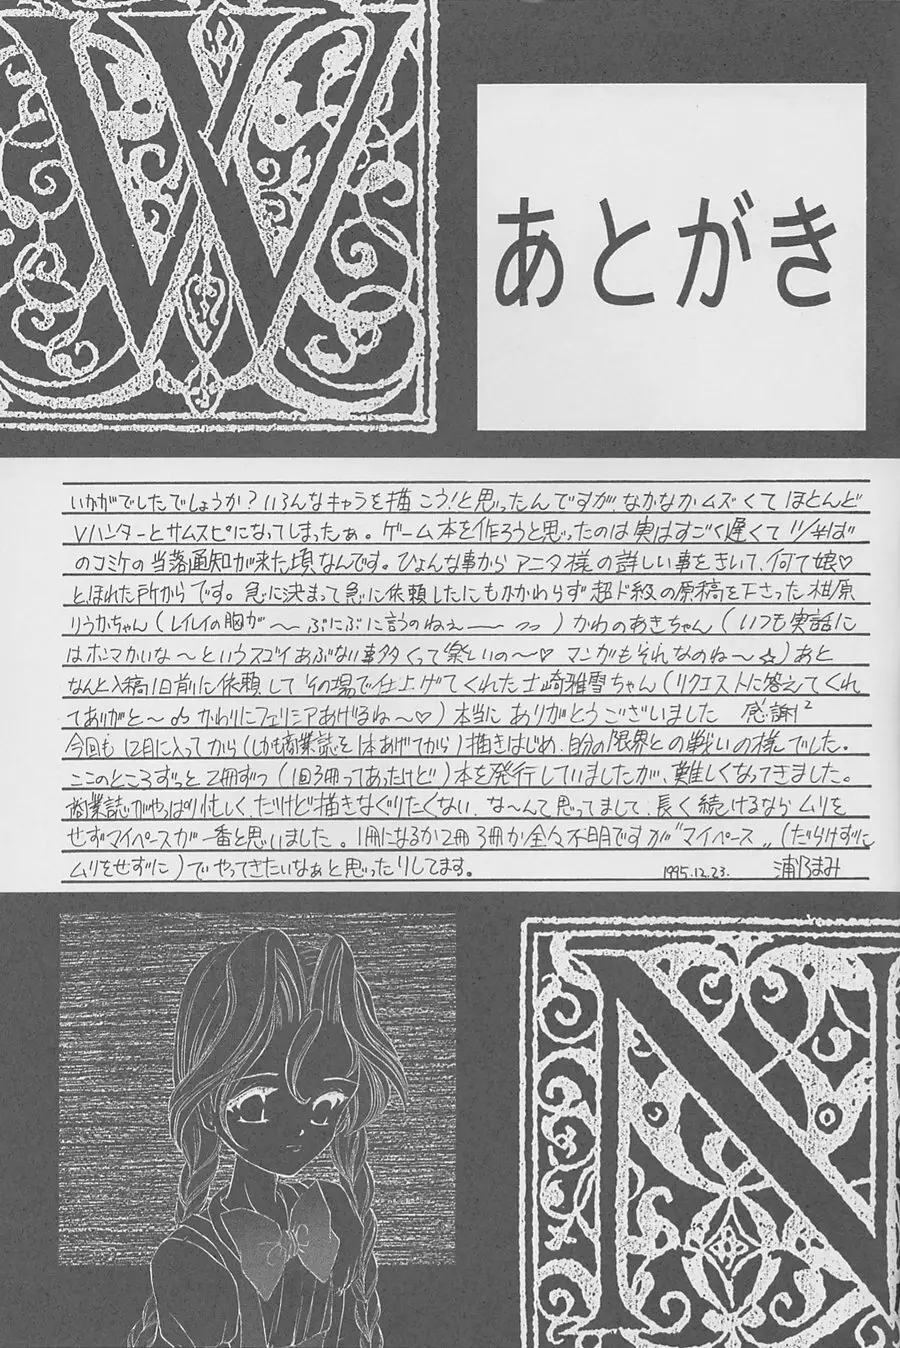 W
あとがき
いかがでしたでしょうか？いろんなキャラを描こう！と思ったんですが なかなかムズくて ほとんど
Vハンターとサムスピになってしまったぁ。ゲーム本を作ろうと思ったのは 実はすごく遅くて 11/半ば
のコミケの当落通知が来た頃なんです。ひょんな事から アニタ様の詳しい事をきいて、何て娘♡
とほれた所からです。急に決まって急に依頼したにもかかわらず 超ド級の原稿を下さった 椎原
りうかちゃん（レイレイの胸が〜ぷにぷに言うのねぇ——）かわのあきちゃん（いつも実話に
はホンマかいな〜というスゴイあぶない事多くって楽しいの〜♡ マンガもそれなのね〜☆）あと
なんと入稿1日前に依頼して その場で仕上げてくれた士崎雅雪ちゃん（リクエストに答えてくれ
てありがと〜♪ かわりにフェリシアあげるね〜♡）本当に ありがとうございました 感謝²
今回も 12月に入ってから（しかも商業誌を1本あげてから）描きはじめ、自分の限界との戦いの様でした。
ここのところずっと 2冊ずつ（1回3冊ってあったけど）本を発行していましたが、難しくなってきました。
商業誌がやっぱり忙しく、だけど描きなぐりたくない、な〜んて思ってまして、長く続けるなら ムリを
せずマイペースが一番と思いました。1冊になるか2冊 3冊か全々不明ですが“マイペース„（だらけずに
ムリをせずに）でやってきたいなぁと思ったりしてます。
1995.12.23. 浦乃まみ
N